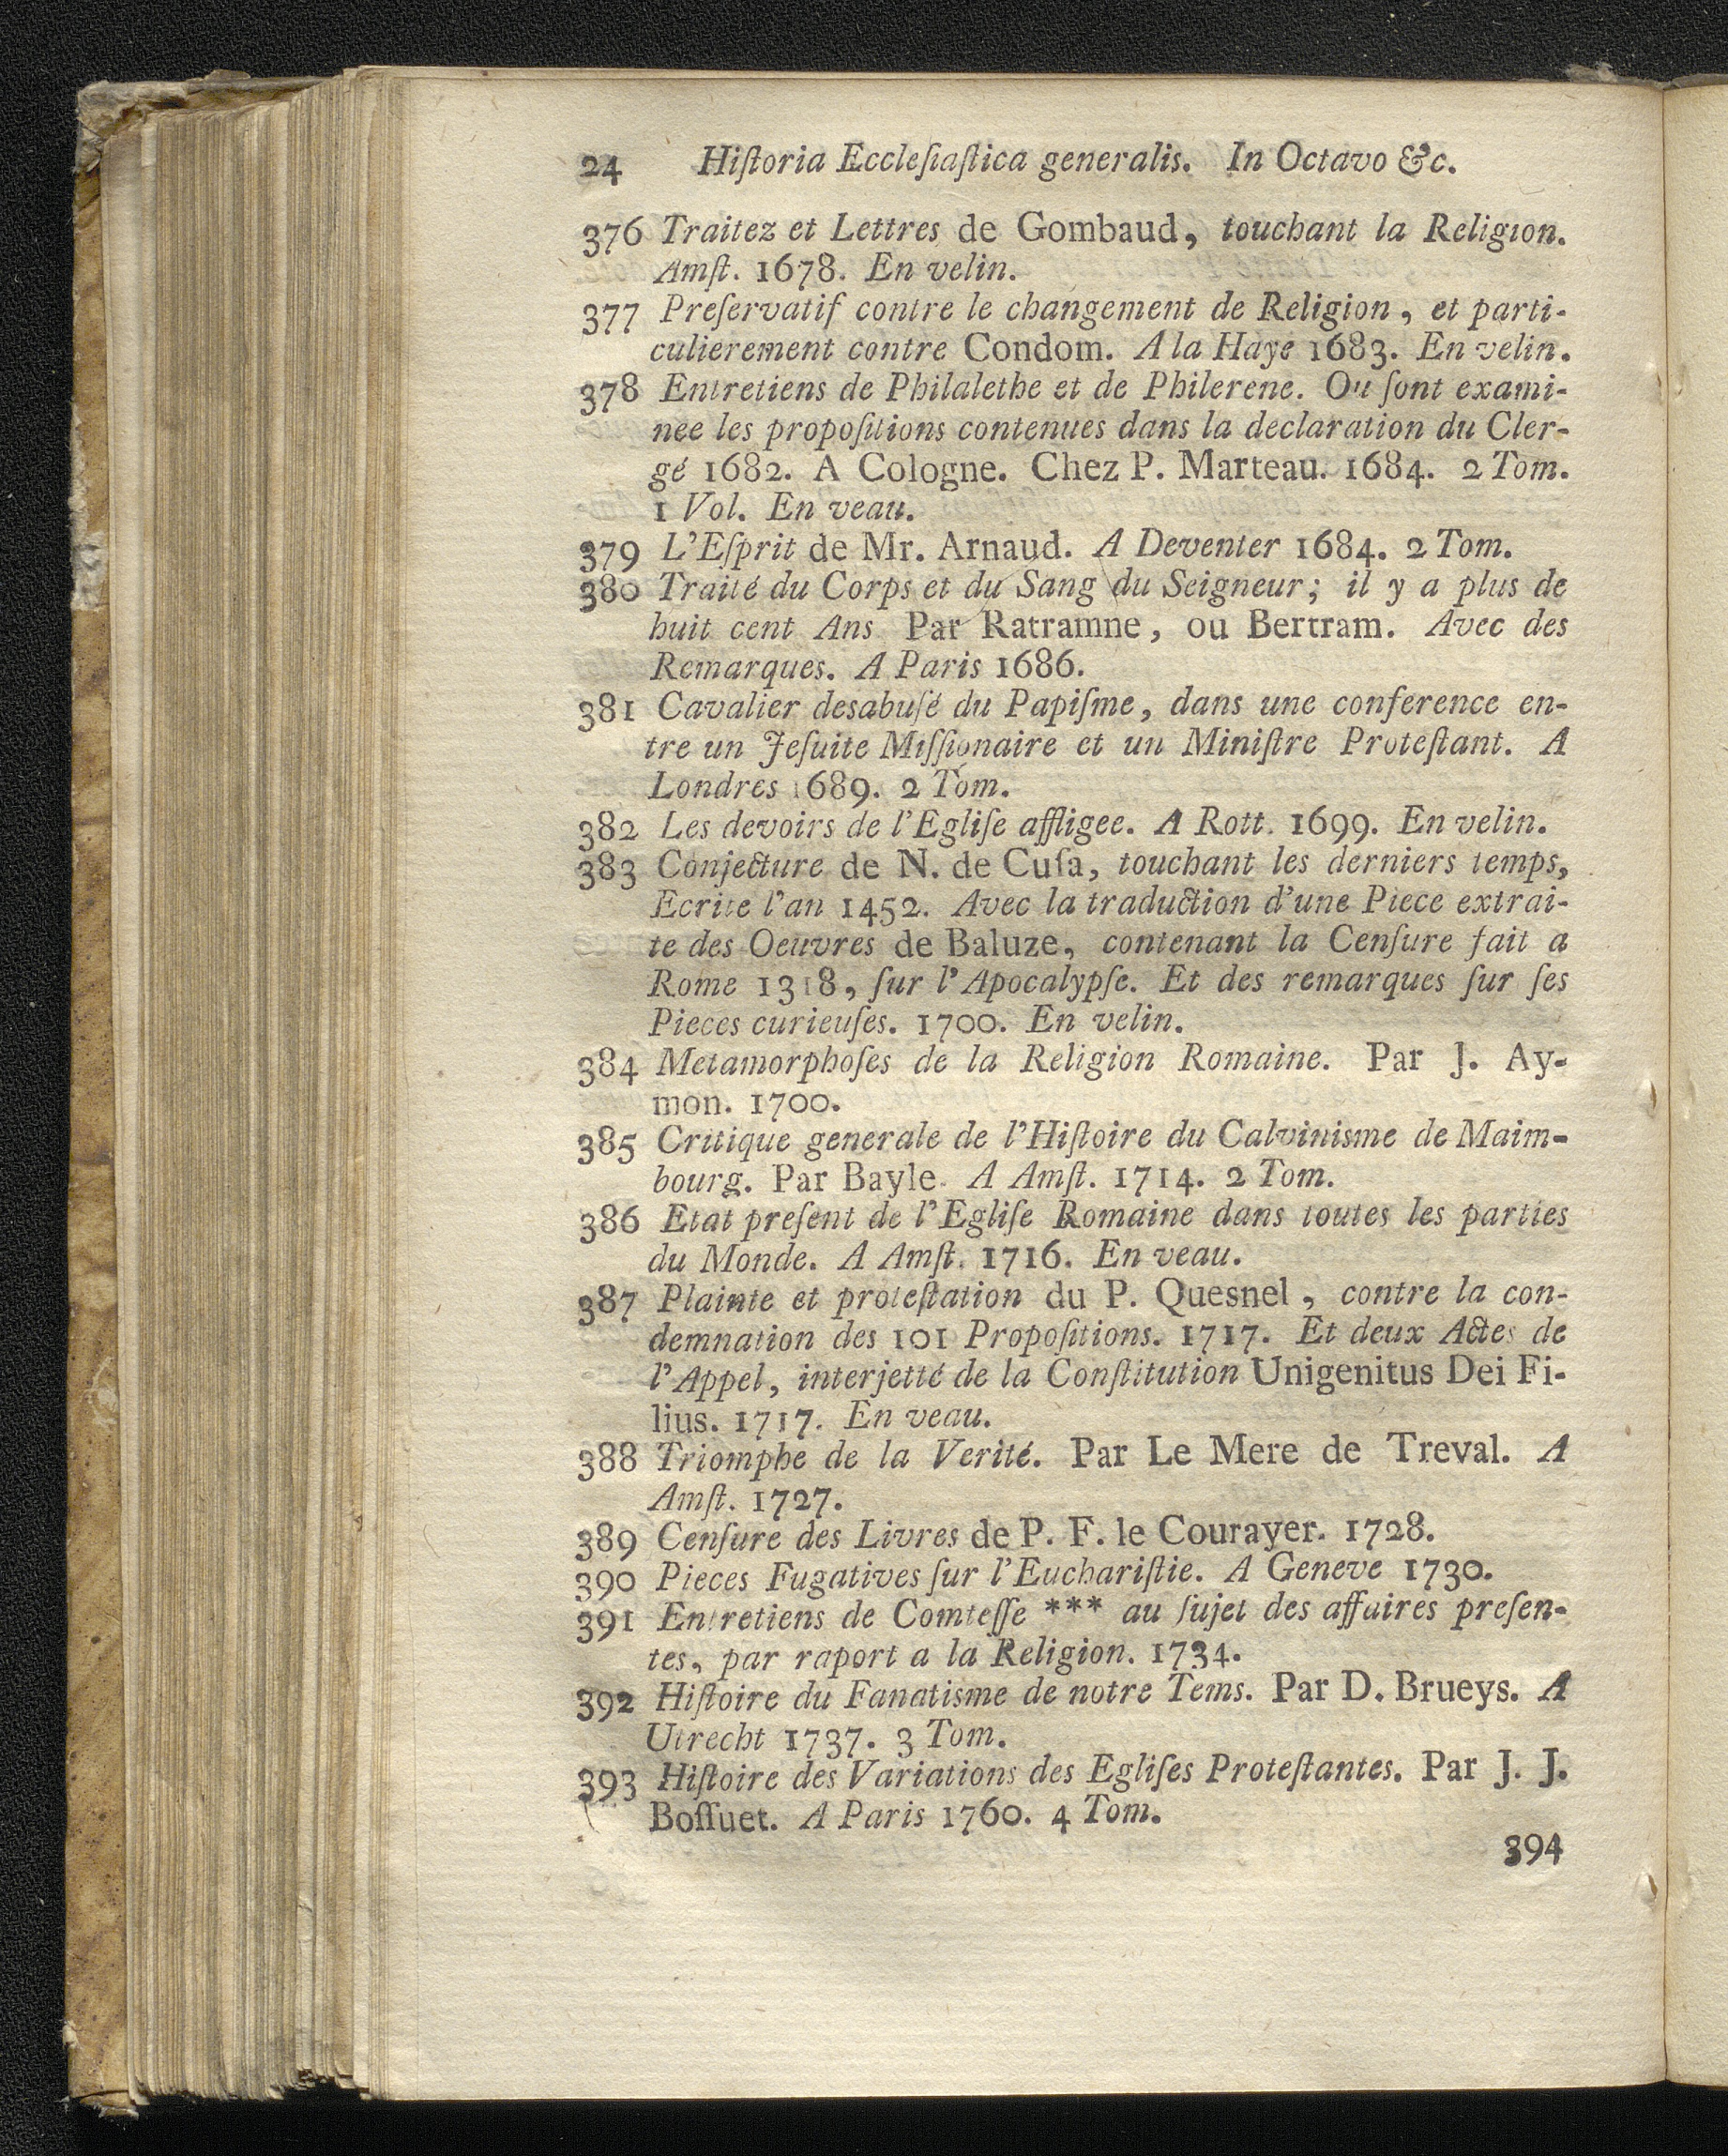 24 Hiſtoria Eccleſiaſtica generalis. In Octavo &c.
376 Traitez et Lettres de Gombaud, touchant la Religion.
Amſt. 1678. En velin.
377 Preſervatif contre le changement de Religion, et parti-
culierement contre Condom. A la Haye 1683. En velin.
378 Entretiens de Philalethe et de Philerene. Ou ſont exami-
nee les propoſitions contenues dans la declaration du Cler-
gé 1682. A Cologne. Chez P. Marteau. 1684. 2 Tom.
1 Vol. En veau.
379 L'Eſprit de Mr. Arnaud. A Deventer 1684. 2 Tom.
380 Traité du Corps et du Sang du Seigneur; il y a plus de
huit cent Ans Par Ratramne, ou Bertram. Avec des
Remarques. A Paris 1686.
381 Cavalier desabuſé du Papiſme, dans une conference en-
tre un Jeſuite Miſſionaire et un Miniſtre Proteſtant. A
Londres 1689. 2 Tom.
382 Les devoirs de l'Egliſe affligee. A Rott. 1699. En velin.
383 Conjecture de N. de Cuſa, touchant les derniers temps,
Ecrite l'an 1452. Avec la traduction d'une Piece extrai-
te des Oeuvres de Baluze, contenant la Cenſure fait a
Rome 1318, ſur l'Apocalypſe. Et des remarques ſur ſes
Pieces curieuſes. 1700. En velin.
384 Metamorphoſes de la Religion Romaine. Par J. Ay-
mon. 1700.
385 Critique generale de l'Hiſtoire du Calvinisme de Maim-
bourg. Par Bayle. A Amſt. 1714. 2 Tom.
386 Etat preſent de l'Egliſe Romaine dans toutes les parties
du Monde. A Amſt. 1716. En veau.
387 Plainte et proteſtation du P. Quesnel, contre la con-
demnation des 101 Propoſitions. 1717. Et deux Actes de
l'Appel, interjetté de la Conſtitution Unigenitus Dei Fi-
lius. 1717. En veau.
388 Triomphe de la Verité. Par Le Mere de Treval. A
Amſt. 1727.
389 Cenſure des Livres de P. F. le Courayer. 1728.
390 Pieces Fugatives ſur l'Euchariſtie. A Geneve 1730.
391 Entretiens de Comteſſe *** au ſujet des affaires preſen-
tes, par raport a la Religion. 1734.
392 Hiſtoire du Fanatisme de notre Tems. Par D. Brueys. A
Utrecht 1737. 3 Tom.
393 Hiſtoire des Variations des Egliſes Proteſtantes. Par J. J.
Boſſuet. A Paris 1760. 4 Tom.
394